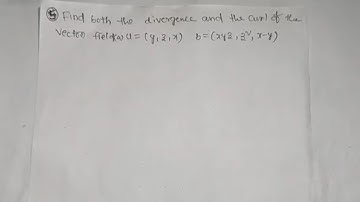 ⑤ Find both the divergence and the curl of the
vector fields a = (y, z, x) b = (xyz, z², x-y)